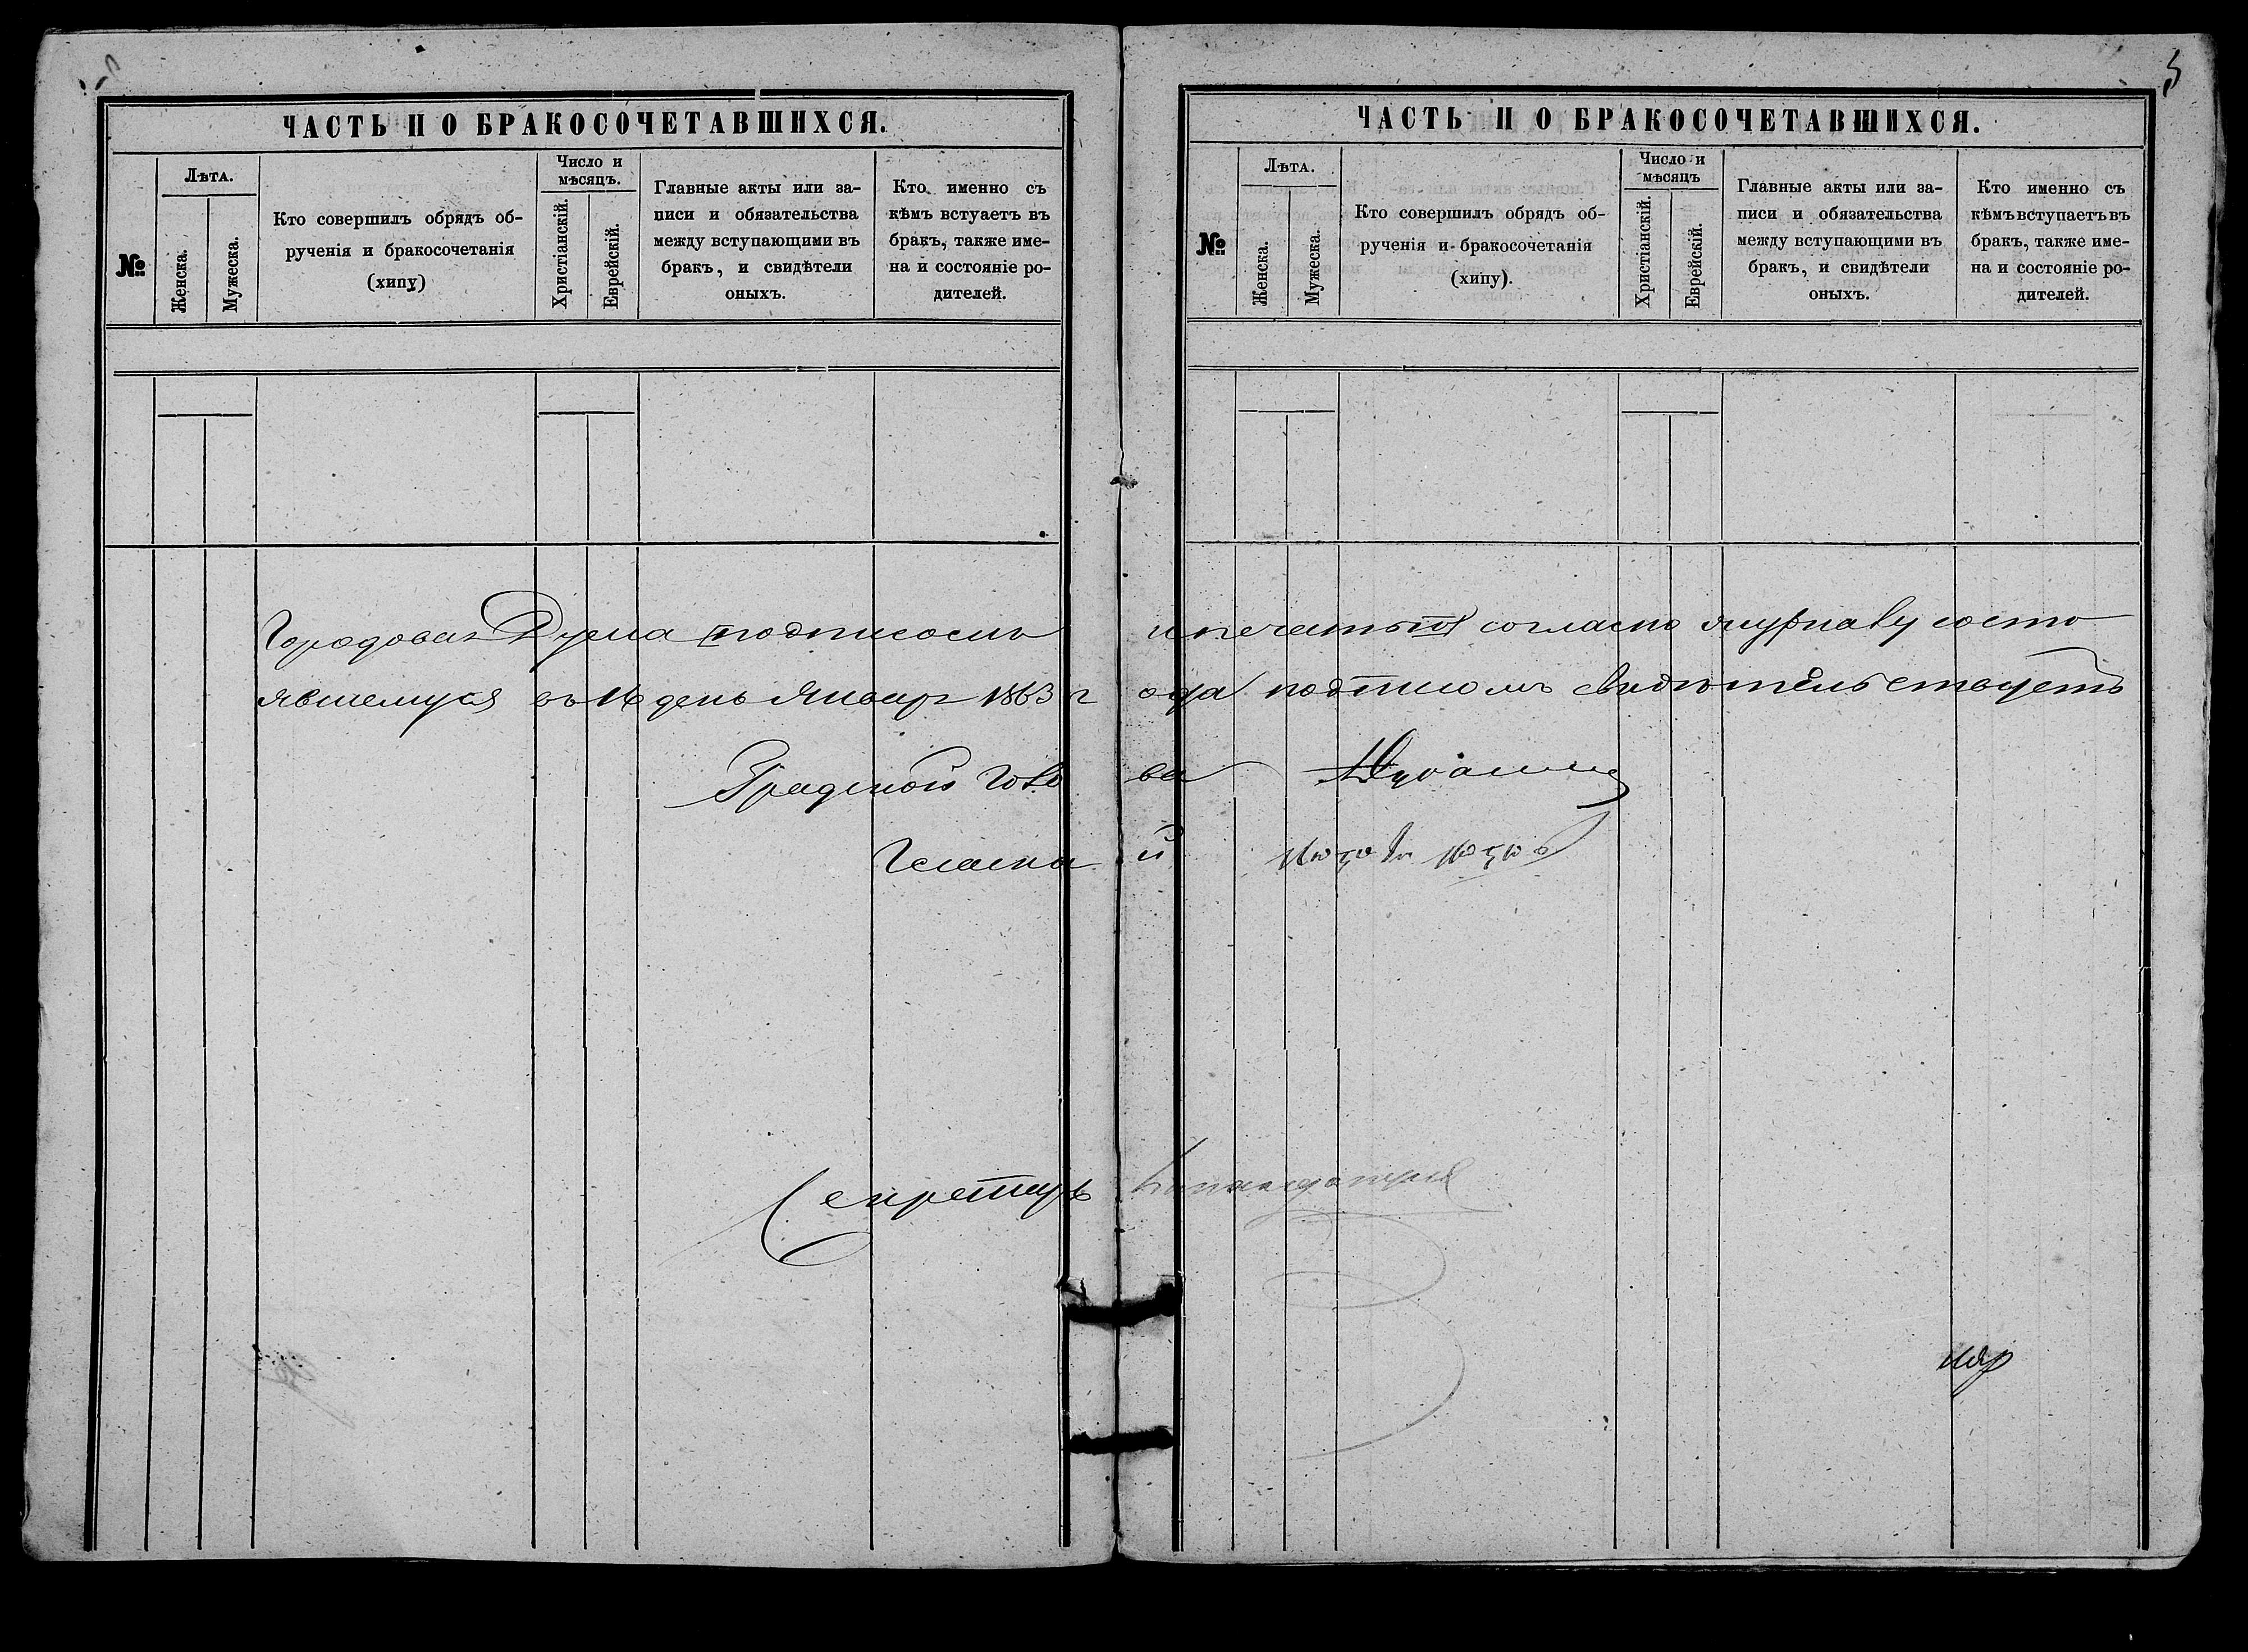 ЧАСТЬ II О БРАКОСОЧЕТАВШИХСЯ.
№
Лѣта.
Женска.
Мужеска.
Кто совершилъ обрядъ об-
рученія и бракосочетанія
(хипу)
Число и
мѣсяцъ.
Христіанскій.
Еврейскій.
Главные акты или за-
писи и обязательства
между вступающими въ
бракъ, и свидѣтели
оныхъ.
Кто именно съ
кѣмъ встуаетъ въ
бракъ, также име-
на и состояніе ро-
дителей.
ЧАСТЬ II О БРАКОСОЧЕТАВШИХСЯ.
№
Лѣта.
Женска.
Мужеска.
Кто совершилъ обрядъ об-
рученія и бракосочетанія
(хипу).
Число и
мѣсяцъ
Христіанскій.
Еврейскій.
Главные акты или за-
писи и обязательства
между вступающими въ
бракъ, и свидѣтели
оныхъ.
Кто именно съ
кѣмъ вступаетъ въ
бракъ, также име-
на и состояніе ро-
дителей.
Городовая Дума подписомъ и печатью согласно журналу состо
явшемуся въ 16 день Января 1863 года подписомъ свидѣтельствуетъ
Градской Голова
Гласный
Секретарь